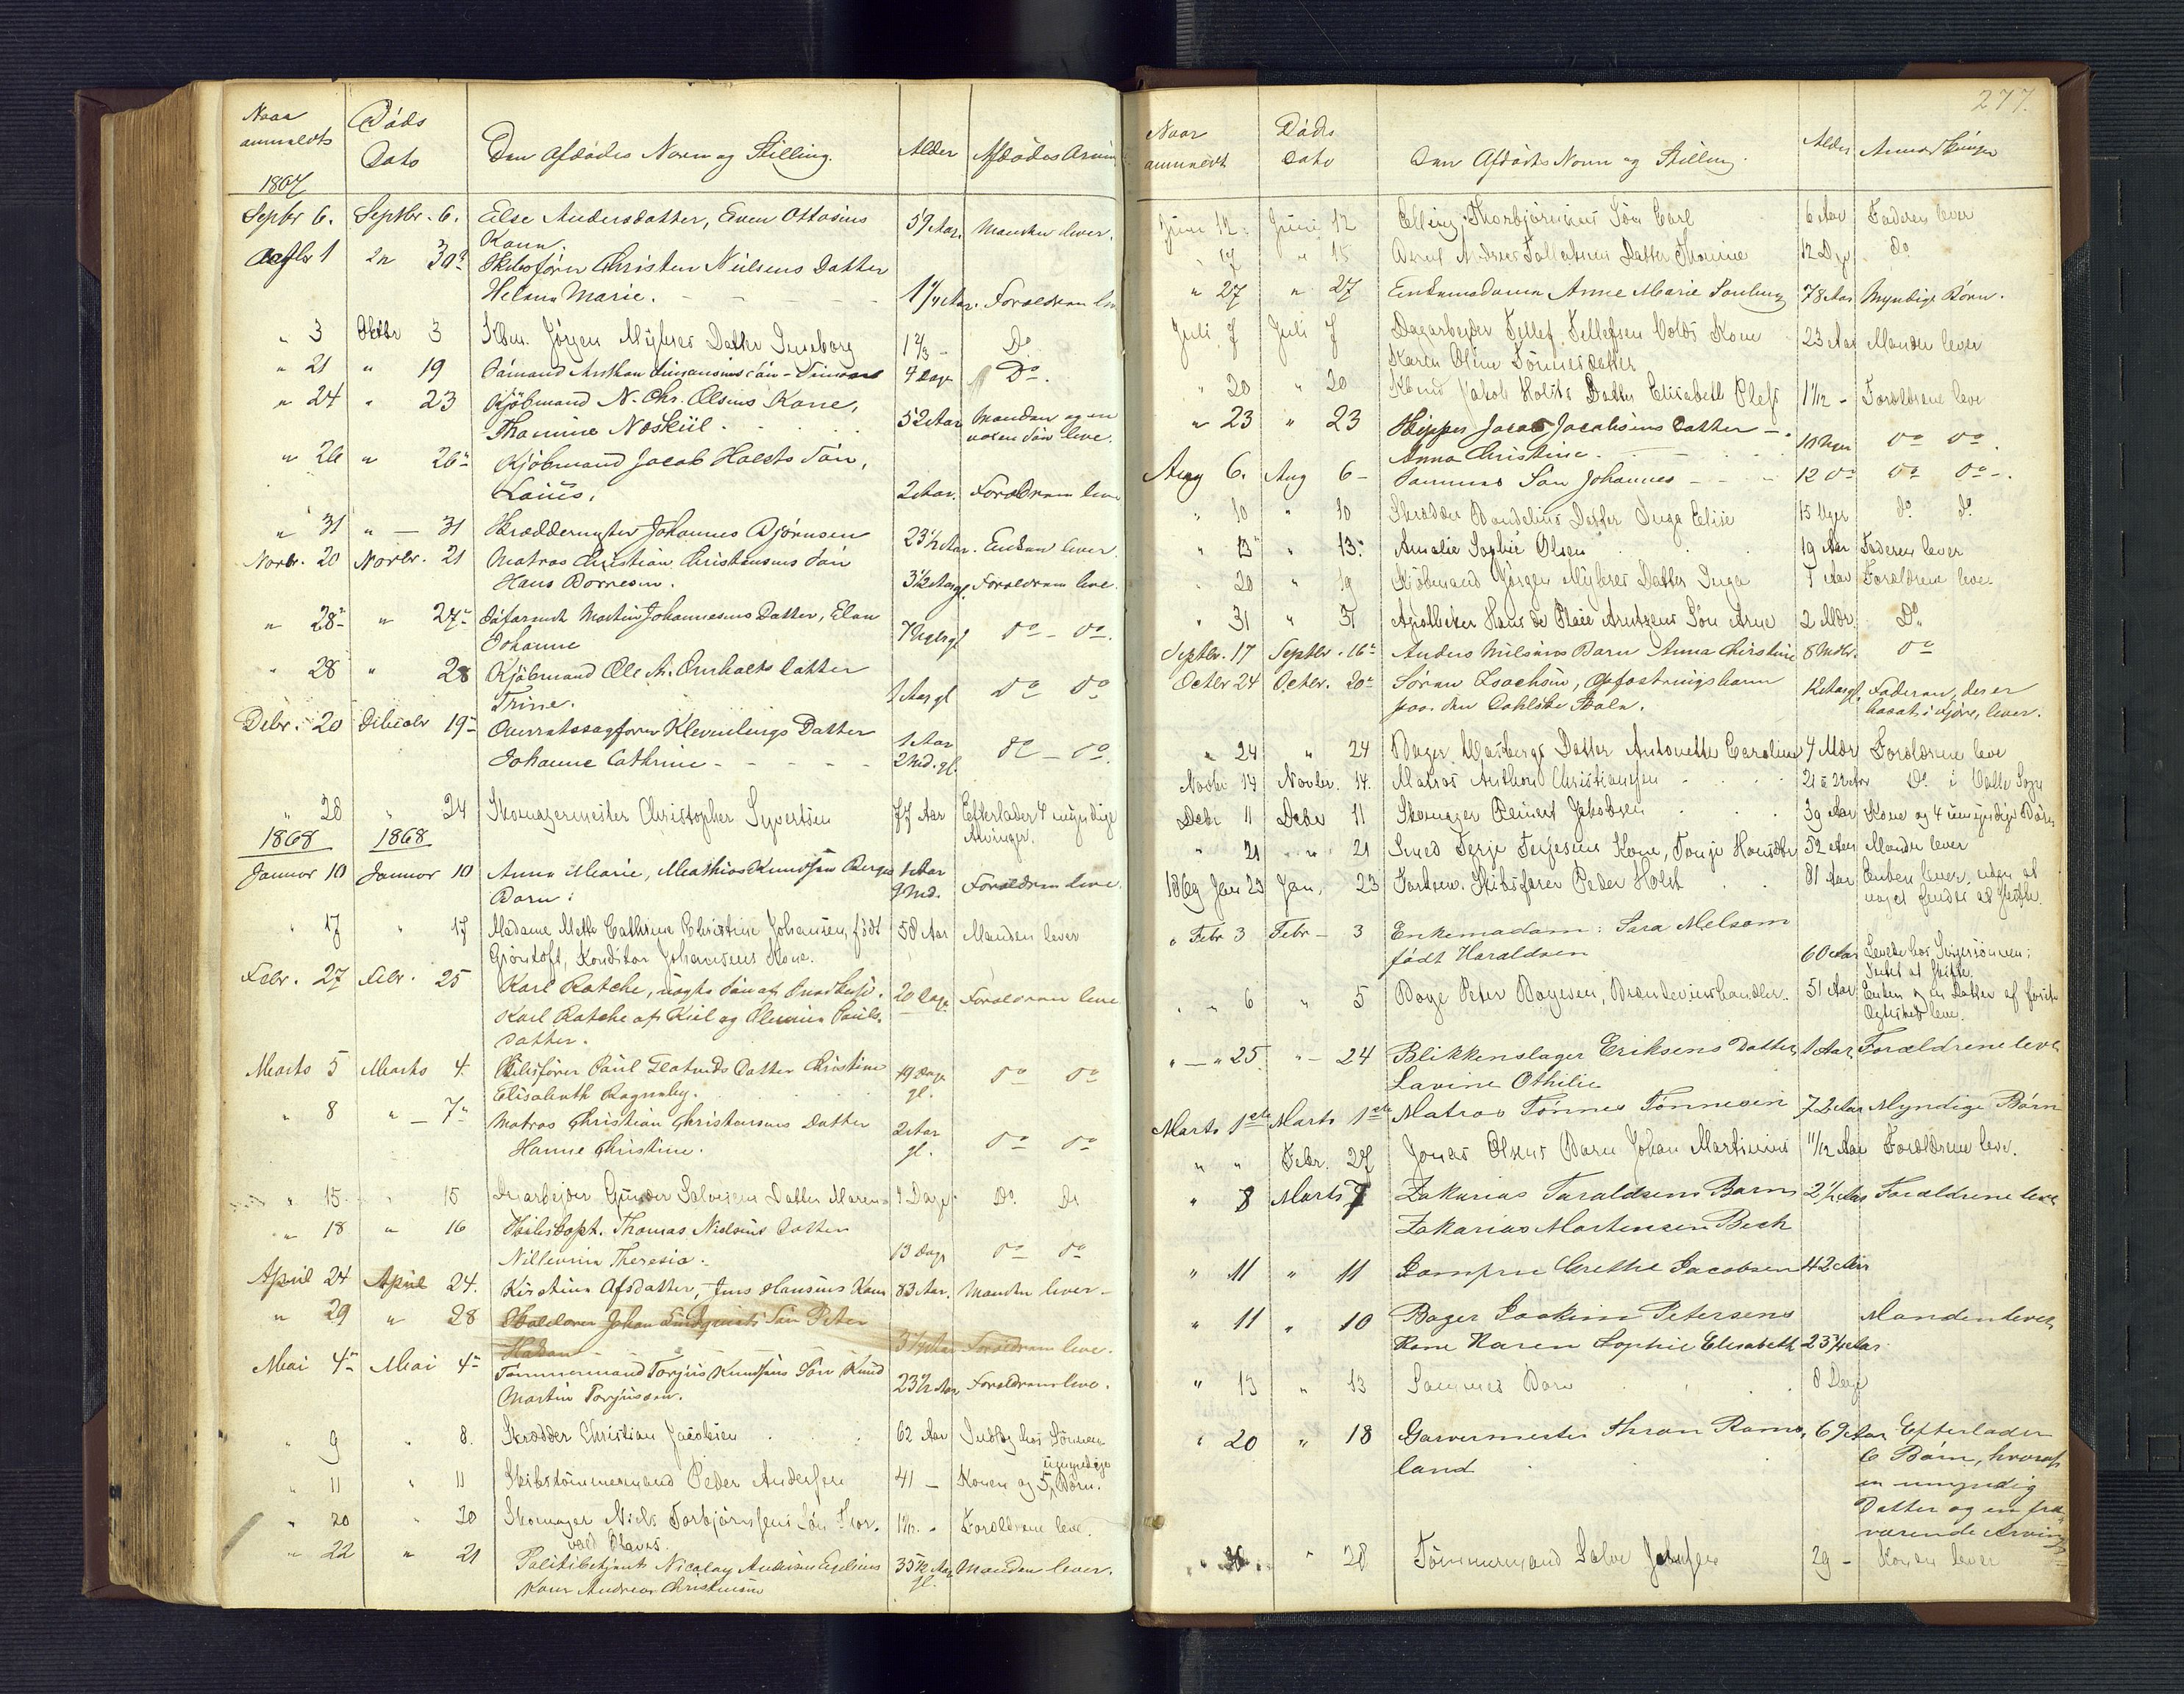 Naar anmeldt | Døds Dato | Den Afdødes Navn og Stilling. | Alder | Afdødes Arvin
1867
Septbr 6. | Septbr. 6. | Else Andersdatter, Even Ottosens | 59 Aar. | Manden lever.
Kone.
1 | 30 | Skibsfører Christen Nielsens Datter
Helena Marie. | 1 1/4 Aar. | Forældrene
" 3 | Octbr 3 | Kbm. Jørgen Myhres Datter Ingeborg | 1 2/3 - | Do
" 21 | " 19 | Sømand | 4 Dage | Do.
" 24 | " 23 | Kjøbmand N. Chr. Olsens Kone, | 52 Aar | Manden og en
Thomine Neskiil. | voxen Søn leve.
" 26 | " 26 | Kjøbmand Jacob Holsts Søn,
Louis. | 2 Aar. | Forældrene leve
" 31 | " — 31 | Skræddermester Johannes Bjørnsen | 23 1/2 Aar. | Enken lever.
Novbr. 20 | Novbr. 21 | Matros Christian Christensens Søn
Hans Borresen. | 3 1/2 Aar gl. | Forældrene leve.
" 28 | " 27 | Søfarende Martin Johannesens Datter, Elen
Johanne | 7 Uger gl | do - do.
" 28 | " 28 | Kjøbmand Ole A. Omholts Datter
Trine. | 1 Aar gl | do do
Debr. 20 | 19 | Overretssagfører Klevenbergs Datter | 1 Aar
Johanne Cathrine - - - | 2 Md. gl. | do — do.
" 28 | " 24 | Skomagermester Christopher Syvertsen | 77 Aar | Efterlader 4 myndige
Arvinger.
1868 | 1868
Januar 10 | Januar 10 | Anna Marie, Mathias Knudsen Berges | 1 Aar
Barn. | 9 Md. | Forældrene leve.
" 17 | " 17 | Madame Mette Cathrine Christine Johansen, født | 58 Aar | Manden lever
Grøntoft, Konditor Johansens Kone.
Febr. 27 | Febr. 25 | Karl Ratche, uægte Søn af | 20 Dage | Forældrene leve
Karl Ratche af Kiel og Pauls-
datter.
Marts 5 | Marts 4. | Skibsfører Paul Datter Christine | 19 Dage | do do
Elisabeth Ragnhild. | gl.
" 8 | " — 7 | Matros Christian Christensens Datter | 2 Aar
Hanne Christine. | gl. | do do
" 15 | " 15 | Gunder Salvesens Datter Maren | 4 Dage | Do. Do
" 18 | " 16 | Skibscapt. Thomas Nielsens Datter
Theresia. | 13 Dage | do do
April 24 | April 24. | Kirstine Jens Hansens Kone | 83 Aar. | Manden lever -
" 29 | " 28 | Johan Lindqvists Søn Peter
Hakan | 3 1/2 Aar | Forældrene leve.
Mai 4 | Mai 4 | Tømmermand Torjus Knudsens Søn Knud
Martin Torjussen. | 23 1/2 Aar | Forældrene leve.
" 9 | " 8. | Skrædder Christian Jacobsen | 62 Aar | hos Sønnen
" 11 | " 11 | Skibstømmermand Peder Andersen | 41 - | Konen og 5 umyndige Børn.
" 20 | " 20 | Skomager Niels Torbjørnsens Søn Thor- | Forældrene leve.
vald Olaves.
" 22 | " 21 | Politibetjent Nicolay | 35 1/2 Aar | Manden lever.
Kone Andrea Christensen | gl.
277.
Naar anmeldt | Døds Dato | Den Afdødes Navn og Stilling. | Alder | Arvinger
Juni 12. | Juni 12 | Elling Thorbjørnsens Søn Carl | 6 Aar | Faderen lever
" 17 | " 15 | Datter Thomine | 12 Dage | Do
" 27 | " 27 | Enkemadam Anne Marie | 78 Aar | Myndige Børn.
Juli 7 | Juli 7 | Dagarbejder Tellef Tellefsen Volds Kone | 23 Aar | Manden lever
Karen Oline Tønnesdatter
" 20 | " 20 | Kbmd Jakob Holsts Datter Elisabeth | 1 1/12 - | Forældrene leve
" 23 | " 23 | Skipper Jacob Jacobsens Datter -
Anna Christine. | 10 Uger | do do.
Aug 6. | Aug 6 - | Sammes Søn Johannes - - | 12 do | do do -.
" 10 | " 10 | Skrædder Datter Inga Elise | 15 Uger | do. do.
" 13 | " 13. | Amalie Sophie Olsen | 19 Aar | Faderen lever
" 20 | " 19 | Kjøbmand Jørgen Myhres Datter Inga | 7 Aar | Forældrene leve
" 31 | " 31 | Apotheker Hans Arntzens Søn Arne | 2 Mdr. | Do.
Septbr. 17 | Septbr. 16 | Anders Nilsens Barn Anna Kirstine | 8 Mdr. | do
Octbr 24 | Octbr. 20 | Søren Isachsen, Opfostringsbarn | 12 Aar gl. | Faderen, der er
paa den Dahlske Skole. | bosat i Fjære, lever.
" 24 | " 24 | Bager Datter Antonette Caroline | 4 Mdr | Forældrene leve
Novbr 14 | Novbr. 14. | Matros Anthon Christiansen | 21 à 22 Aar | Do. i Valle Sogn
Debr 11 | Debr 11 | Skomager Reinert Jakobsen | 39 Aar | Kone og 4 umyndige Børn
" 21 | " 21 | Smed Terje Terjesens Kone, Tonje | 52 Aar | Manden lever
1869 Jan 23 | Jan. 23 | Skibsfører Peder Holst | 81 Aar | Enken lever, uden at
noget findes at skifte.
" Febr 3 | Febr — 3 | Enkemadam: Sara Melsom
født Haraldsen | 60 Aar | Levede hos
Intet at skifte.
" " 6 | " 5 | Boye Peter Boyesen, Brændeviinshandler. | 51 Aar | Enken og en Datter af første
Ægteskab leve.
" — " 25. | " — 24 | Blikkenslager Eriksens Datter | 1 Aar | Forældrene leve
Lavine Othilie
Marts 1ste | Marts 1ste | Matros Tønnes Tønnesen | 72 Aar | Myndige Børn
" " | Febr. 27 | Jonas Olsens Barn Johan Martinius | 11/12 Aar | Forældrene leve.
" 8 | Marts 7 | Zakarias Taraldsens Barn | 2 1/2 Aar | Forældrene leve
Zakarias Mortensen Bech
" 11 | " 11 | Jomfru Grethe Jacobsen | 42 Aar
" 11 | " 10 | Bager Joakim Petersens | Manden lever
Kone Karen Sophie Elisabeth | 23 3/4 Aar
" 13 | " 13 | Sammes Barn | 8 Dage
" 20 | " 18 | Garvermester Thron Rams- | 69 Aar | Efterlader
land | 6 Børn, hvoraf
en umyndig
Datter og en fra-
værende Arving
" | " 28 | Tømmermand Salve | 29 - | Konen lever